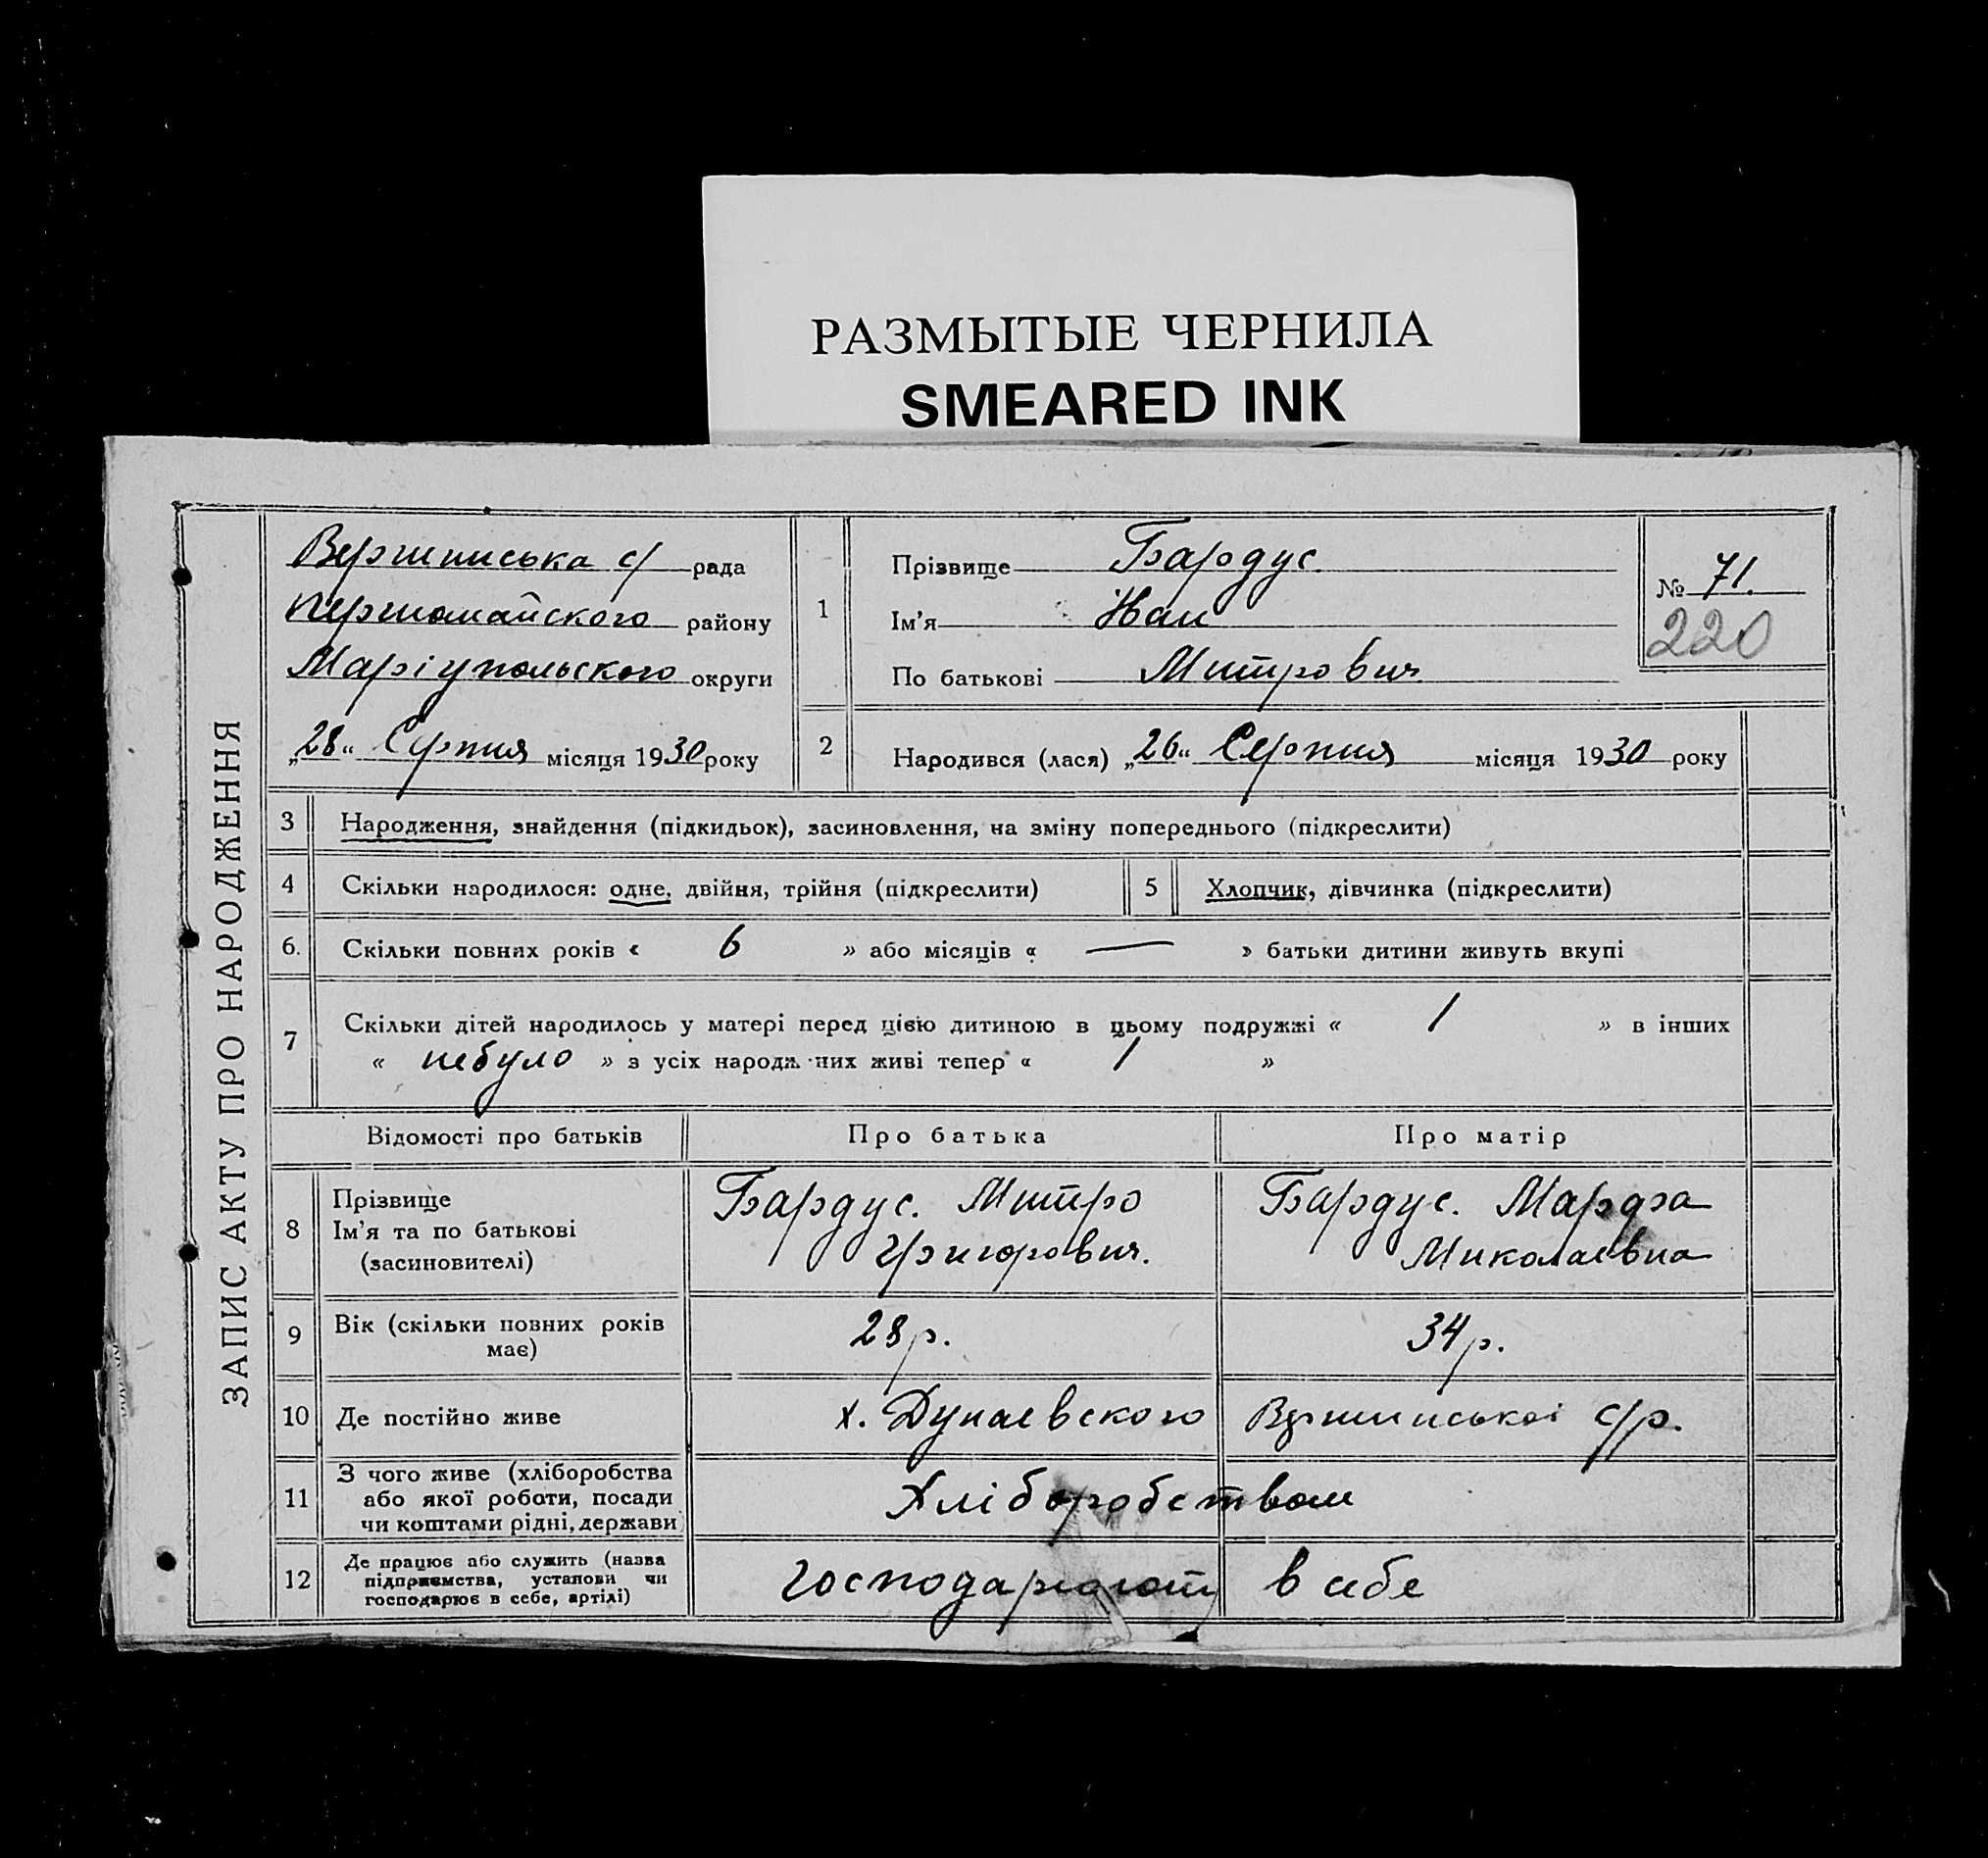 РАЗМЫТЫЕ ЧЕРНИЛА
SMEARED INK
ЗАПИС АКТУ ПРО НАРОДЖЕННЯ
Вершинська с/ рада
Першомайского району
Маріупольского округи
„28“ Серпня місяця 1930 року
1
Прізвище Бардус.
Ім'я Иван
По батькові Митрович
№ 71.
220
2
Народився (лася) „26“ Серпня місяця 1930 року
3 Народження, знайдення (підкидьок), засиновлення, на зміну попереднього (підкреслити)
4 Скільки народилося: одне, двійня, трійня (підкреслити) 5 Хлопчик, дівчинка (підкреслити)
6. Скільки повних років « 6 » або місяців « — » батьки дитини живуть вкупі
7 Скільки дітей народилось у матері перед цією дитиною в цьому подружжі « 1 » в інших
« небуло » з усіх народж них живі тепер « 1 »
Відомості про батьків Про батька Про матір
8 Прізвище
Ім'я та по батькові
(засиновителі)
Бардус. Митро
Григорович.
Бардус. Марфа
Миколаевна
9 Вік (скільки повних років
має)
28 р. 34 р.
10 Де постійно живе х. Дунаевского Вершинськоі с/р.
11 З чого живе (хліборобства
або якої роботи, посади
чи коштами рідні, держави
Хліборобством
12 Де працює або служить (назва
підприємства, установи чи
господарює в себе, артілі)
Господарюють в себе